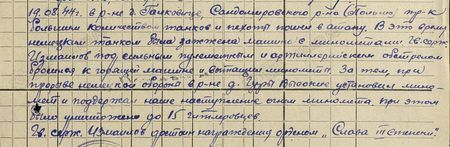 19.08.44г. в р-не д. Ганковице, Сандомировского р-на (Польша) пр-к
большим количеством танков и пехоты пошел в атаку. В это время
немецким танком была зажжена машина с минометами. Гв. серж.
Измаилов под сильным пулеметным и артиллерийским обстрелом
бросился к горящей машине и вытащил минометы. За тем, при
прорыве немецкой обороны в р-не д. Гуры Высокие установил мино-
мет и поддержал наше наступление огнем миномета, при этом
было уничтожено до 15 гитлеровцев.
Гв. серж. Измаилов достоин награждения орденом „Слава III степени".